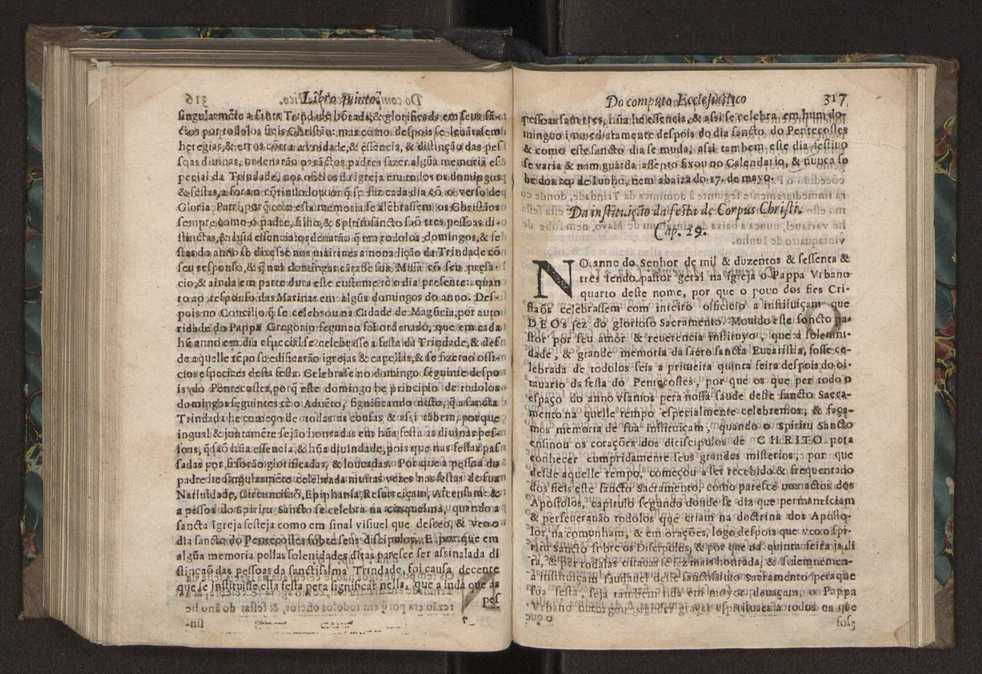 Libro quinto.
singularmēte a sancta Trindade honrada, & glorificada em seus sā-
ctos por todolos fieis Christãos: mas como despois se leuātasem
heregias, & erros contra a trindade, & essencia, & distinção das pes
soas diuinas, ordenarão os sāctos padres fazer algũa memoria es
pecial da Trindade, nos officios da Igreja em todos os domingos
& festas,
Gloria Patri, por que com esta memoria se alembrassem os Christãos
sempre como o padre, filho, & Spiritu sancto são tres pessoas di-
stinctas,
seu responso, & q̄ nos domingos
cio, & ainda em parte dura este custume tē o dia presente: quan
to ao responso das Matinas em algūs domingos do anno. Des-
pois no Concilio q̄ se celebrou na Cidade de Magūcia, por auto
ridade do Pappa Gregorio segundo foi ordenado, que em cada
hū anno em dia especial se celebrasse a festa da Trindade, & des
de aquelle tēpo se edificarão igrejas & capellas, & se fizerão offi-
cios especiaes desta festa. Celebrase no domingo seguinte despo
is do Pentecostes, porq̄ este domingo he principio de todolos
domingos seguintes tē o Aduēto, significando nisto, q̄ a sancta
Trindade he começo de todas as cousas & assi tābem, porque
ingual & juntamēte sejão honradas em hūa festa as diuinas pes-
soas, q̄ são hūa essencia, & hūa diuindade, pois que nas festas pas
sadas por si forão glorificadas, & louuadas. Porque a pessoa do
padre he singularmēte celebrada muitas vezes nas festas de sua
Natiuidade, Circuncisaõ, Epiphania, Resurreiçam, Ascensam &
a pessoa do Spiritu sancto se celebra na cinquesma, quando a
sancta igreja festeja como em sinal visiuel que desceo, & veo o
dia sancto do Pentecostes sobre seus discipulos. E porque em
algūa memoria pellas solenidades ditas paresce ser assinalada di
stinção das pessoas da sanctissima Trindade, foi causa decente
que se instituisse esta festa pera significar nella, que a inda que as
pes
Do computo Ecclesiastico 317
pessoas sam tres, hūa he essencia, & assi se celebra em hum do-
mingo immediatamente despois do dia sancto do Pentecostes
& como este sancto dia se muda, assi tambem este dia festiuo
se varia & nam guarda assento fixo no Calendario, & nunca so
be dos 20. de Iunho, nem abaixa do 17. de mayo.
Da instituição da festa de Corpus Christi.
Cap. 29.
NO anno do Senhor de mil & duzentos & sessenta &
tres sendo pastor geral na igreja o Pappa Vrbano
quarto deste nome, por que o pouo dos fies Cri-
stãos celebrassem com inteiro officio a instituiçam que
DEOs fez do glorioso Sacramento. Mouido este sancto pa-
stor por seu amor & reuerencia instituyo, que a solemni-
dade, & grande memoria da sacro sancta Eucaristia, fosse ce-
lebrada de todolos fieis a primeira quinta feira despois do oi-
tauario da festa do Pentecostes, por que os que per todo o
espaço do anno vsamos pera nossa saude deste sancto Sacra-
mento na quelle tempo especialmente celebremos, & faça-
mos memoria de sua instituiçam, quando o spiritu sancto
ensinou os corações dos discipulos de CHRITO pera
conhecer cumpridamente seus grandes misterios; por que
desde aquelle tempo, começou a ser recebido & frequentado
dos fieis este sancto Sacramento, como paresce nos actos dos
Apostolos, capitulo segundo donde se diz que permanesciam
& perseuerauão todolos que criam na doctrina dos Aposto-
los, na comunham, & em orações, logo despois que veo o spi-
ritu sancto sobre os Discipulos, & por que na quinta feira ja di
ta, & per todas as oitauas se fez mais honrada, & solemnemen-
a instituiçam saudauel deste sanctissimo Sacramento pera que
sua festa, seja tambem tida em mayor deuaçam, o Pappa
Vrbano quarto
graças espirituaes a todos os que